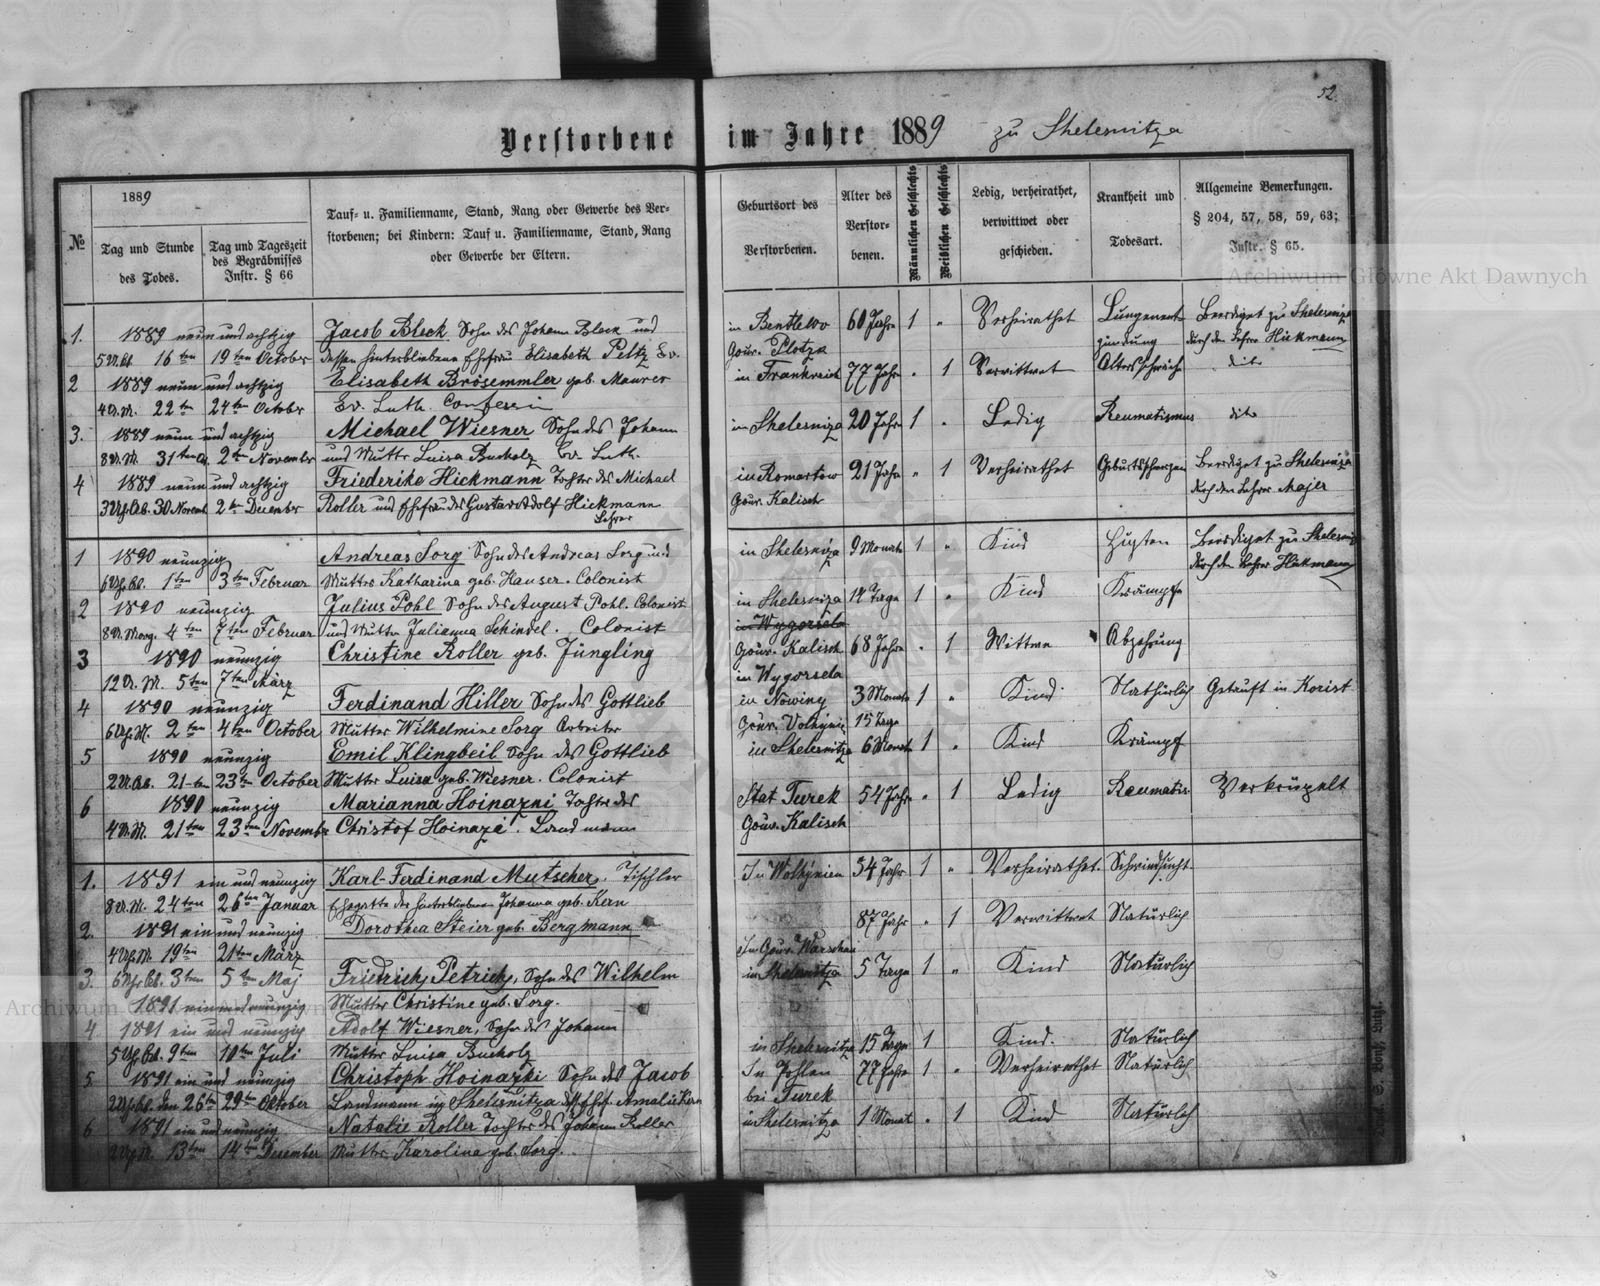 52.
Verstorbene im Jahre 1889 zu Shelesnitza
№
1889
Tag und Stunde des Todes.
Tag und Tageszeit des Begräbnisses Instr. § 66
Tauf- u. Familienname, Stand, Rang oder Gewerbe des Ver-
storbenen; bei Kindern: Tauf u. Familienname, Stand, Rang
oder Gewerbe der Eltern.
Geburtsort des Verstorbenen.
Alter des Verstor-benen.
Männlichen Geschlechts
Weiblichen Geschlechts
Ledig, verheirathet, verwittwet oder geschieden.
Krankheit und Todesart.
Allgemeine Bemerkungen.
§ 204, 57, 58, 59, 63;
Instr. § 65.
Archiwum Główne Akt Dawnych
1. 1889 neun und achtzig Jacob Bleck Sohn des Johann Bleck und in Bentlewo 60 Jahr 1 " Verheirathet Lungenent- Beerdiget zu Shelesniza
16ten 19ten October dessen hinterbliebene Ehefrau Elisabeth Peltz Ev. Gouv. Plotza zündung durch den Lehrer Hickmann
2 1889 neun und achtzig Elisabeth Brösemmler geb. Maurer in Frankreich 77 Jahr " 1 Verwittwet Altersschwäche dito
4 U. M. 22ten 24ten October Ev. Luth. Confession
3. 1889 neun und achtzig Michael Wiesner Sohn des Johann in Shelesniza 20 Jahr 1 " Ledig Reumatismus dito
8 U. M. 31ten 2ten November und Mutter Luisa Bucholz Ev. Luth.
4 1889 neun und achtzig Friederike Hickmann Tochter des Michael in Romartow 21 Jahr " 1 Verheirathet Geburtsschmerzen Beerdiget zu Shelesniza
3 Uhr Ab. 30 Novemb. 2ten December Roller und Ehefrau des Gustav Adolf Hickmann Gouv. Kalisch durch den Lehrer Majer
Lehrer
1 1890 neunzig Andreas Sorg Sohn des Andreas Sorg und in Shelesniza 9 Monate 1 " Kind Husten Beerdiget zu Shelesniz
6 Uhr Ab. 1ten 3ten Februar Mutter Katharina geb. Hauser. Colonist durch den Lehrer Hickmann
2 1890 neunzig Julius Pohl Sohn des August Pohl. Colonist in Shelesniza 14 Tage 1 " Kind Krämpfe
8 U. Morg. 4ten 7ten Februar und Mutter Julianna Schindel. Colonist in Wygorsela
3 1890 neunzig Christine Roller geb. Jüngling Gouv. Kalisch 68 Jahre " 1 Wittwe Abzehrung
12 U. M. 5ten 7ten März in Wygorsela
4 1890 neunzig Ferdinand Hiller Sohn des Gottlieb in Nowiny 3 Monate 1 " Kind Nathürlich Getauft in Korist
6 Uhr M. 2ten 4ten October Mutter Wilhelmine Sorg Arbeiter Gouv. Volhynie 15 Tage
5 1890 neunzig Emil Klingbeil Sohn des Gottlieb in Shelesnitza 6 Monate 1 " Kind Krämpf
2 U. Ab. 21-ten 23ten October Mutter Luisa geb. Wiesner. Colonist
6 1890 neunzig Marianna Hoinazni Tochter des Stat Turek 54 Jahr " 1 Ledig Reumatis. Verkrüpelt
4 U. M. 21ten 23ten November Christof Hoinazé. Landmann Gouv. Kalisch
1. 1891 ein und neunzig Karl-Ferdinand Mutscher. Tischler In Wolhynien 54 Jahr 1 " Verheirathet. Schwindsucht.
8 U. M. 24ten 26ten Januar Ehegatte der hinterbliebenen Johanna geb. Kern
2. 1891 ein und neunzig Dorothea Steier geb. Bergmann 87 Jahr " 1 Verwittwet Natürlich
4 Uhr M. 19ten 21ten März In Gouv. Warschau
3. 6 Uhr Ab. 3ten 5ten Maj Friedrich Petrich, Sohn des Wilhelm in Shelesnitza 5 Tage 1 " Kind Natürlich
1891 ein und neunzig Mutter Christine geb. Sorg.
4. 1891 ein und neunzig Adolf Wiesner, Sohn des Johann in Shelesnitza 15 Tage 1 Kind. Natürlich
5 Uhr Ab. 9ten 10ten Juli Mutter Luisa Bucholz
5. 1891 ein und neunzig Christoph Hoinazki Sohn des Jacob In Pohlen 77 Jahr 1 " Verheirathet Natürlich
den 26ten 29ten Oktober Landmann in Shelesnitza Amalie Kern bei Turek
6 1891 ein und neunzig Natalie Roller Tochter des Johann Roller in Shelesnitza 1 Monat " 1 Kind Natürlich
2 Uhr M. 13ten 14ten Desember Mutter Karolina geb. Sorg.